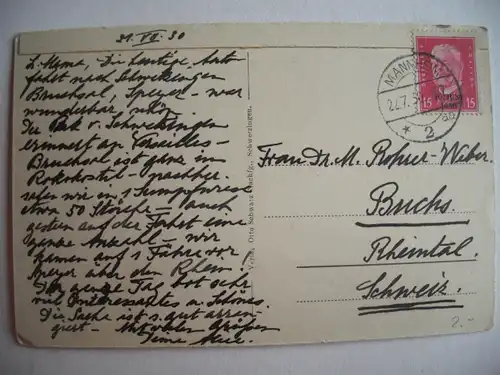 21. VII. 30
L. Mama, Die heutige Auto
fahrt nach Schwetzingen
Bruchsal, Speyer – war
wunderbar schön.
Der Park v. Schwetzingen
erinnert an Versailles –
Bruchsal ist ganz im
Rokokostil –
sahen wir in 1 Sumpfwiese
etwa 50 Störche – auch
gestern auf der Fahrt eine
ganze Anzahl – wir
kamen auf 1 Fähre vor
Speyer über den Rhein!
Der ganze Tag bot sehr
viel Interessantes u. Schönes.
Die Sache ist s. gut arran-
giert – Mit vielen Grüßen
Deine
Verlag Otto Schwarz Schwetzingen.
MANNHEIM
22.7.
* 2
15 15
Frau Dr. M. Rohrer-Weber.
Buchs.
Rheintal.
Schweiz.
2.-